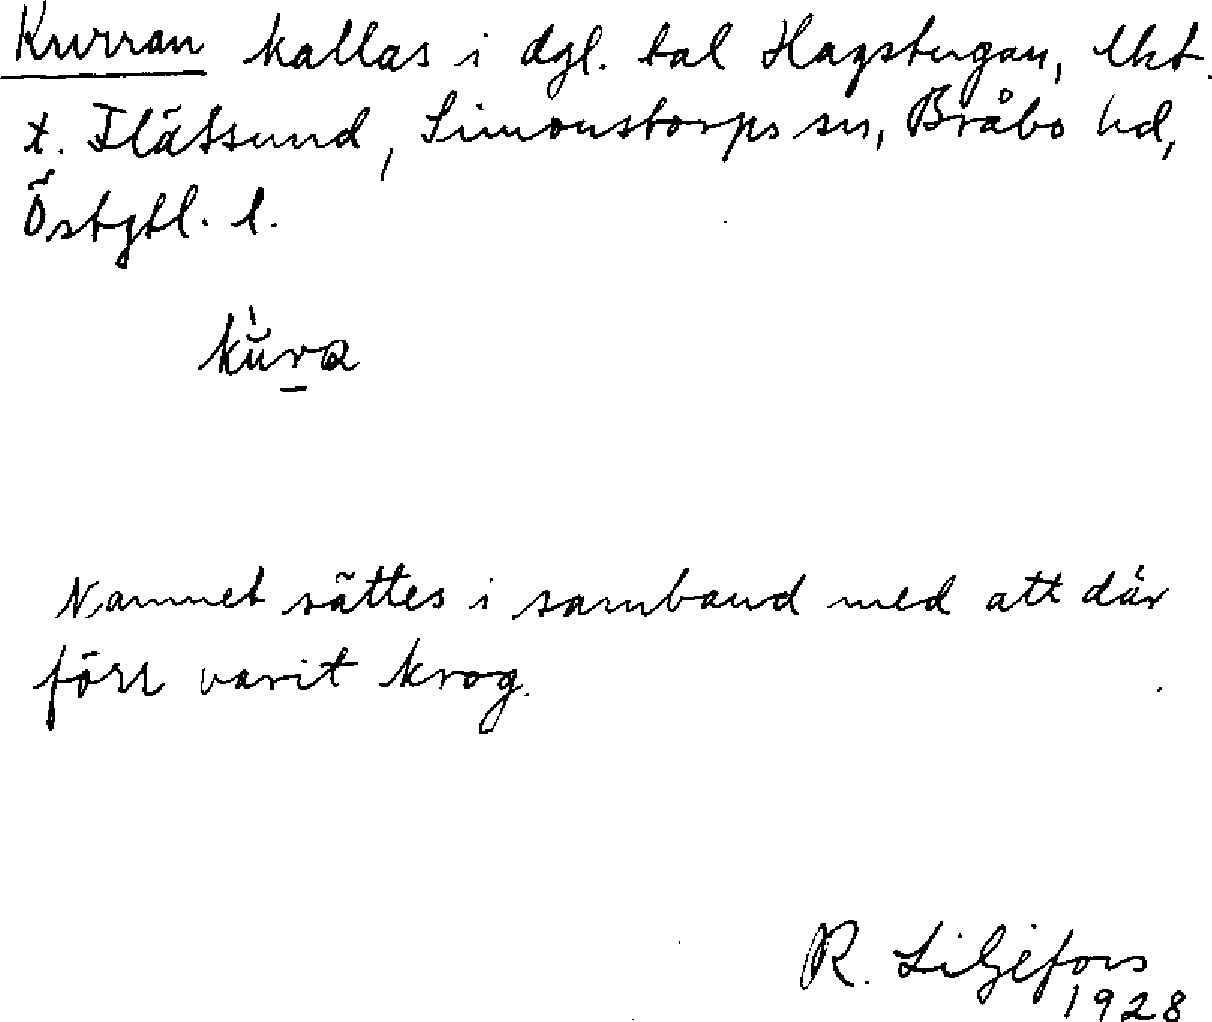 Kurran kallas i dgl. tal Hagstugan, lht.
t. Flätsund, Simonstorps sn, Bråbo hd,
Östgtl. l.
Namnet sättes i samband med att där
förr varit krog.
R. Liljefors
1928